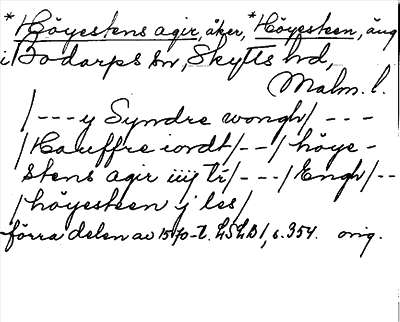 *Höyestens agir, åker, *Höyesteen, äng
i Bodarps sn, Skytts hd,
Malm. l.
/--- y Syndre wongh/ ---
/Hauffre iordt/--/ höye-
stens agir iiij tr/---/Engh/--
/höyesteen j les/
förra delen av 1570-t. LSLB1, s. 354. orig.